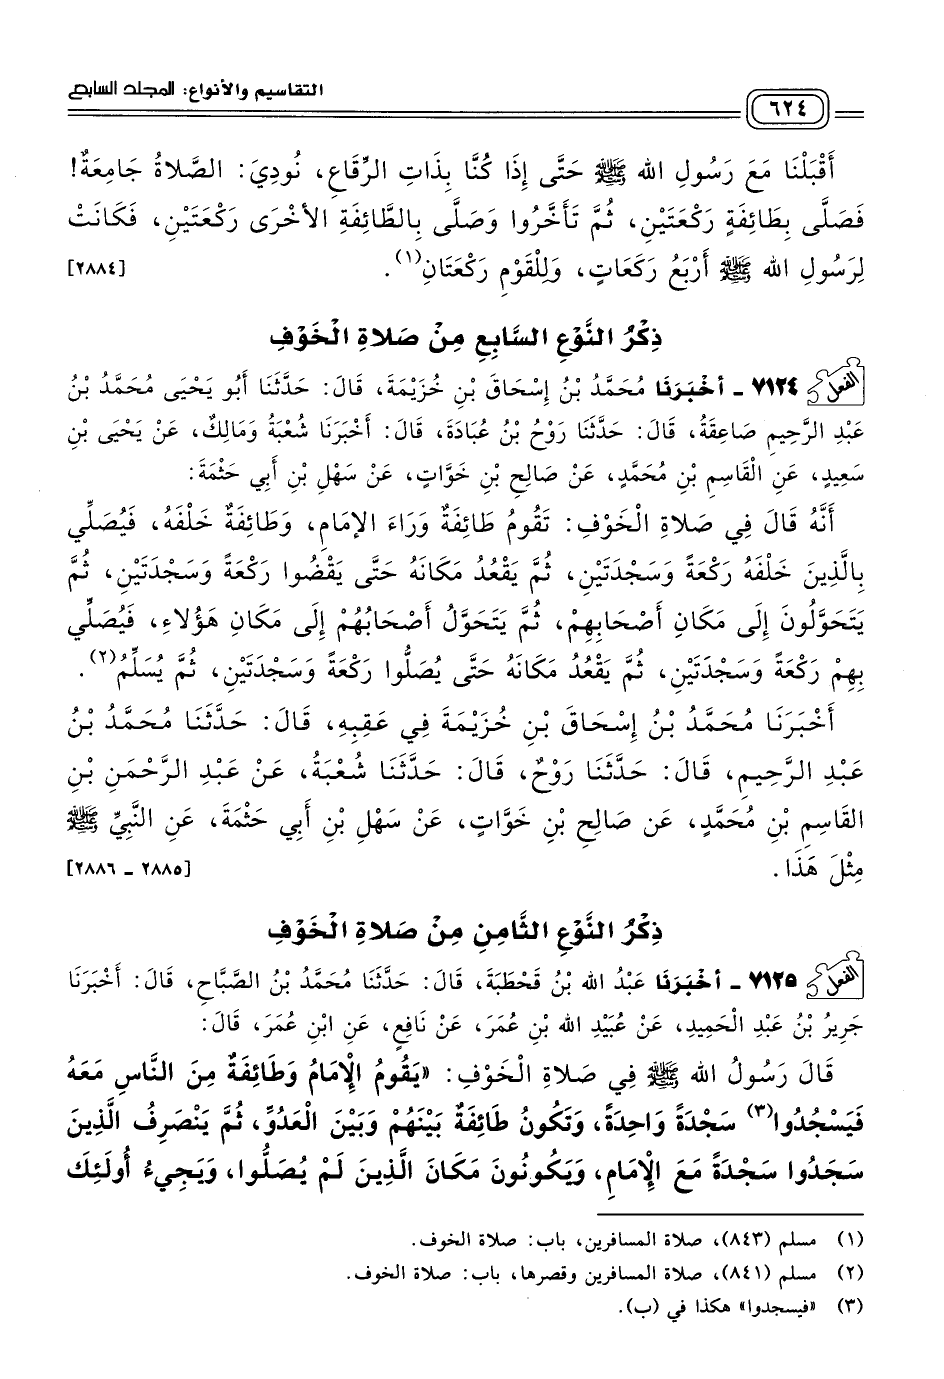 ٦٢٤
التقاسيم والأنواع: المجلد السابع
أَقْبَلْنَا مَعَ رَسُولِ الله ﷺ حَتَّى إِذَا كُنَّا بِذَاتِ الرِّقَاعِ، نُودِيَ: الصَّلاةُ جَامِعَةٌ!
فَصَلَّى بِطَائِفَةٍ رَكْعَتَيْنِ، ثُمَّ تَأَخَّرُوا وَصَلَّى بِالطَّائِفَةِ الأخْرَى رَكْعَتَيْنِ، فَكَانَتْ
لِرَسُولِ الله ﷺ أَرْبَعُ رَكَعَاتٍ، وَلِلْقَوْمِ رَكْعَتَانِ(١). [٢٨٨٤]
ذِكْرُ النَّوْعِ السَّابِعِ مِنْ صَلاةِ الْخَوْفِ
الفعل ٧١٢٤ - أخْبَرَنَا مُحَمَّدُ بْنُ إِسْحَاقَ بْنِ خُزَيْمَةَ، قَالَ: حَدَّثَنَا أَبُو يَحْيَى مُحَمَّدُ بْنُ
عَبْدِ الرَّحِيمِ صَاعِقَةُ، قَالَ: حَدَّثَنَا رَوْحُ بْنُ عُبَادَةَ، قَالَ: أَخْبَرَنَا شُعْبَةُ وَمَالِكٌ، عَنْ يَحْيَى بْنِ
سَعِيدٍ، عَنِ الْقَاسِمِ بْنِ مُحَمَّدٍ، عَنْ صَالِحِ بْنِ خَوَّاتٍ، عَنْ سَهْلِ بْنِ أَبِي حَثْمَةَ:
أَنَّهُ قَالَ فِي صَلاةِ الْخَوْفِ: تَقُومُ طَائِفَةٌ وَرَاءَ الإمَامِ، وَطَائِفَةٌ خَلْفَهُ، فَيُصَلِّي
بِالَّذِينَ خَلْفَهُ رَكْعَةً وَسَجْدَتَيْنِ، ثُمَّ يَقْعُدُ مَكَانَهُ حَتَّى يَقْضُوا رَكْعَةً وَسَجْدَتَيْنِ، ثُمَّ
يَتَحَوَّلُونَ إِلَى مَكَانِ أَصْحَابِهِمْ، ثُمَّ يَتَحَوَّلُ أَصْحَابُهُمْ إِلَى مَكَانِ هَؤُلاءِ، فَيُصَلِّي
بِهِمْ رَكْعَةً وَسَجْدَتَيْنِ، ثُمَّ يَقْعُدُ مَكَانَهُ حَتَّى يُصَلُّوا رَكْعَةً وَسَجْدَتَيْنِ، ثُمَّ يُسَلِّمُ(٢).
أَخْبَرَنَا مُحَمَّدُ بْنُ إِسْحَاقَ بْنِ خُزَيْمَةَ فِي عَقِبِهِ، قَالَ: حَدَّثَنَا مُحَمَّدُ بْنُ
عَبْدِ الرَّحِيمِ، قَالَ: حَدَّثَنَا رَوْحٌ، قَالَ: حَدَّثَنَا شُعْبَةُ، عَنْ عَبْدِ الرَّحْمَنِ بْنِ
القَاسِمِ بْنِ مُحَمَّدٍ، عَن صَالِحِ بْنِ خَوَّاتٍ، عَنْ سَهْلِ بْنِ أَبِي حَثْمَةَ، عَنِ النَّبِيِّ ﷺ
مِثْلَ هَذَا. [٢٨٨٥ - ٢٨٨٦]
ذِكْرُ النَّوْعِ الثَّامِنِ مِنْ صَلاةِ الْخَوْفِ
الفعل ٧١٢٥ - أخْبَرَنَا عَبْدُ الله بْنُ قَحْطَبَةَ، قَالَ: حَدَّثَنَا مُحَمَّدُ بْنُ الصَّبَّاحِ، قَالَ: أَخْبَرَنَا
جَرِيرُ بْنُ عَبْدِ الْحَمِيدِ، عَنْ عُبَيْدِ الله بْنِ عُمَرَ، عَنْ نَافِعٍ، عَنِ ابْنِ عُمَرَ، قَالَ:
قَالَ رَسُولُ الله ﷺ فِي صَلاةِ الْخَوْفِ: «يَقُومُ الْإِمَامُ وَطَائِفَةٌ مِنَ النَّاسِ مَعَهُ
فَيَسْجُدُوا(٣) سَجْدَةً وَاحِدَةً، وَتَكُونُ طَائِفَةٌ بَيْنَهُمْ وَبَيْنَ الْعَدُوِّ، ثُمَّ يَنْصَرِفُ الَّذِينَ
سَجَدُوا سَجْدَةً مَعَ الْإِمَامِ، وَيَكُونُونَ مَكَانَ الَّذِينَ لَمْ يُصَلُّوا، وَيَجِيءُ أُولَئِكَ
(١) مسلم (٨٤٣)، صلاة المسافرين، باب: صلاة الخوف.
(٢) مسلم (٨٤١)، صلاة المسافرين وقصرها، باب: صلاة الخوف.
(٣) «فيسجدوا» هكذا في (ب).